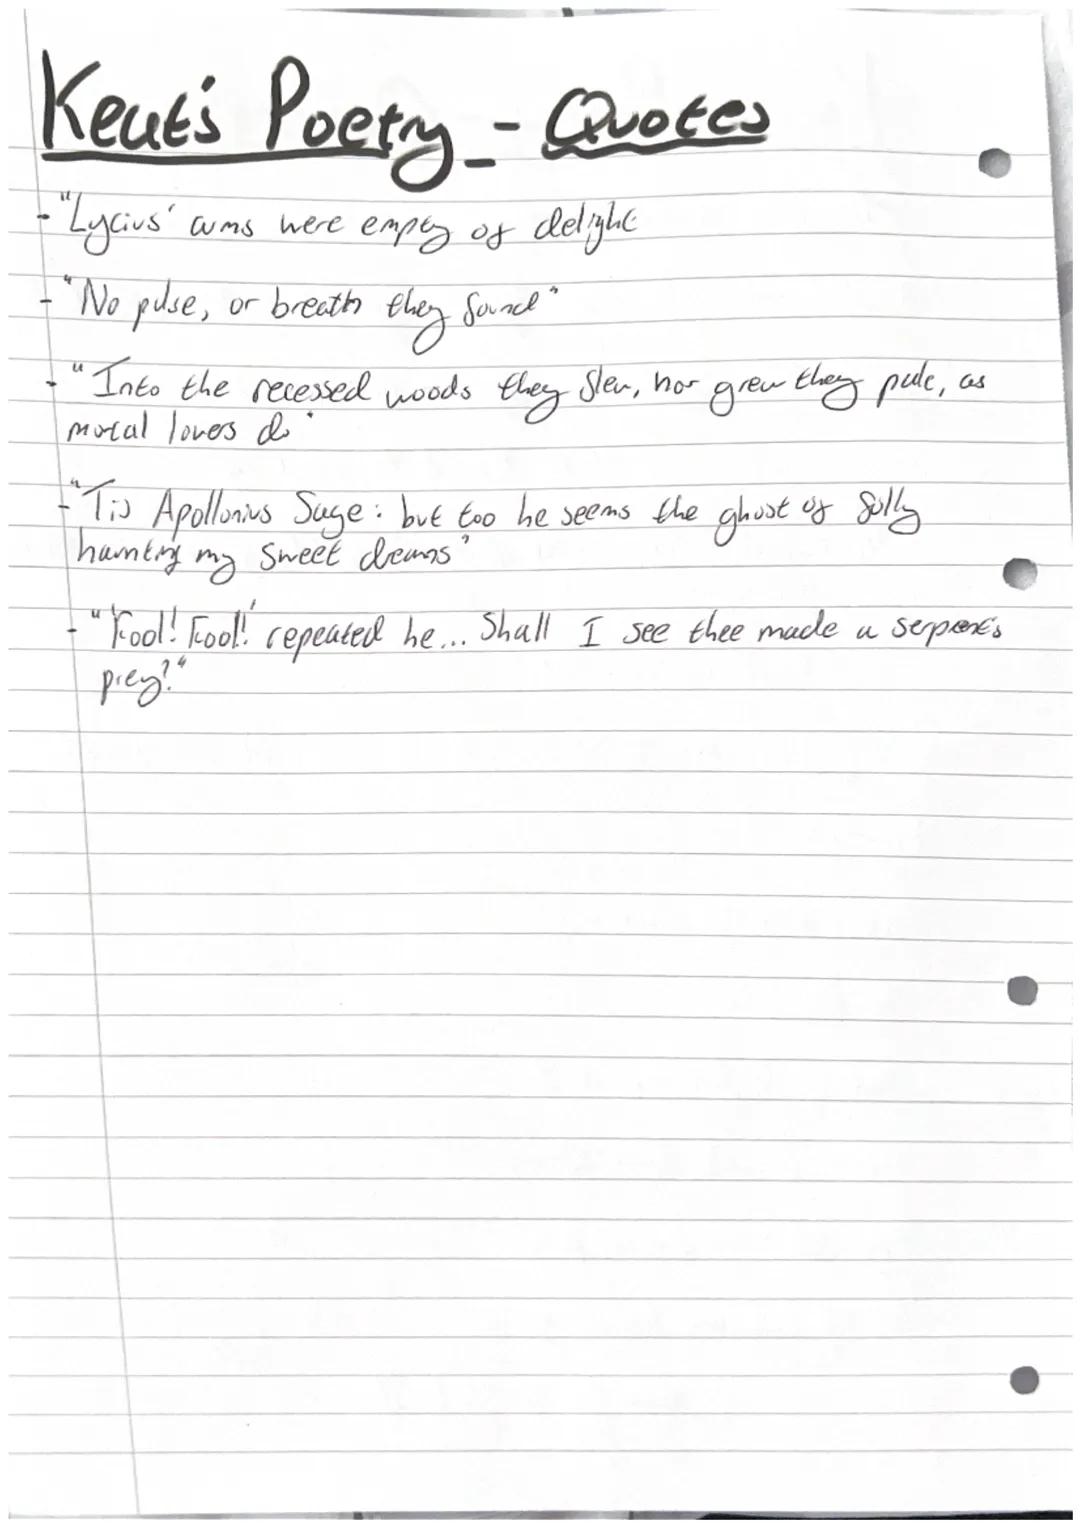 Keat's Poetry - Quotes
- "Lycius' arms were empty of delight
- "No pulse, or breath they found"
- "Into the recessed woods they flew, nor grew they pale, as
mortal lovers do"
- "Tis Apollonius Sage: but too he seems the ghost of folly
haunting my sweet dreams"
- "'Fool! Fool!' repeated he... Shall I see thee made a serpent's
prey?"